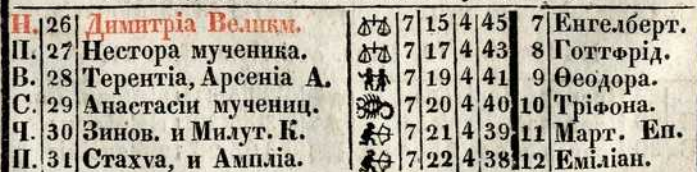 Н. 26 Димитріа Великм. 7 15 4 45 7 Енгелберт.
П. 27 Нестора мученика. 7 17 4 43 8 Готтфрід.
В. 28 Терентіа, Арсеніа А. 7 19 4 41 9 Ѳеодора.
С. 29 Анастасіи мучениц. 7 20 4 40 10 Тріфона.
Ч. 30 Зинов. и Милут. К. 7 21 4 39 11 Март. Еп.
П. 31 Стахѵа, и Ампліа. 7 22 4 38 12 Еміліан.